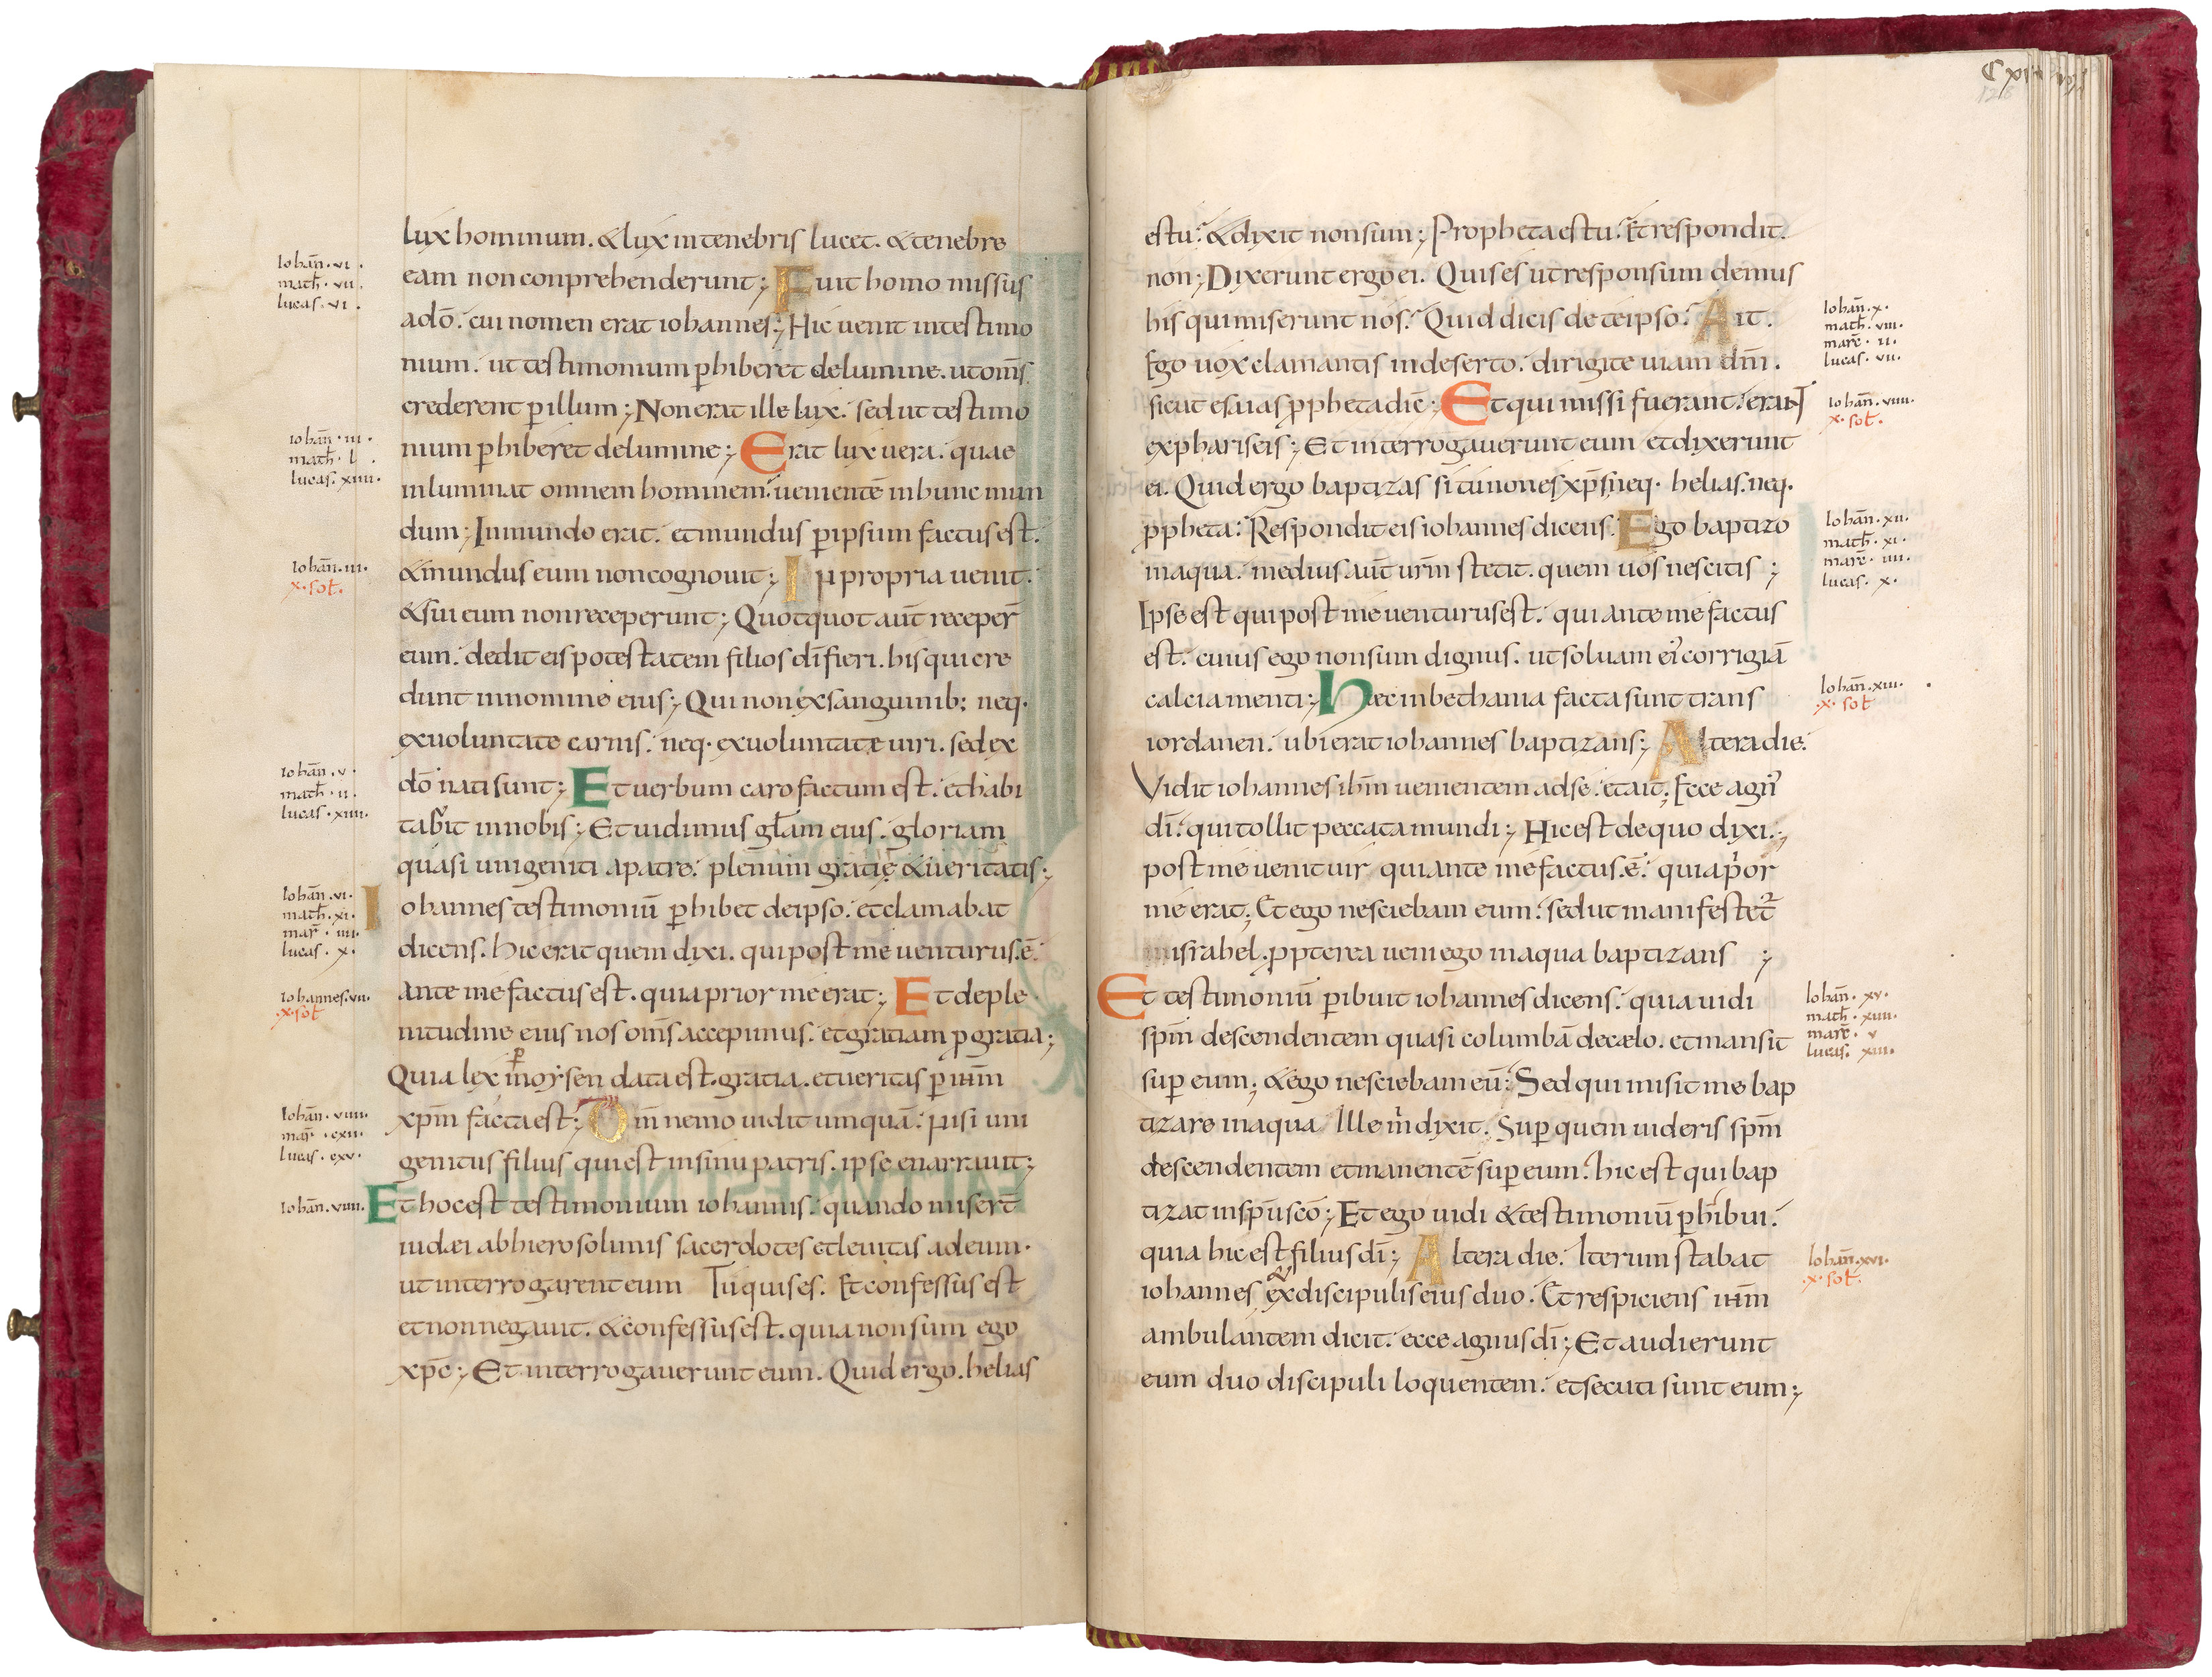 lux hominum. & lux in tenebris lucet. & tenebre
Iohan̄. vi.
math̄. vii.
lucas. vi.
eam non conprehenderunt; Fuit homo missus
a dō. cui nomen erat iohannes; Hic uenit in testimo
nium. ut testimonium phiberet de lumine. ut om̄s
crederent p illum; Non erat ille lux. sed ut testimo
Iohan̄. iii.
math̄. l.
lucas. xiiii.
nium phiberet de lumine; Erat lux uera. quae
inluminat omnem hominem. uenientē in hunc mun
dum; In mundo erat. et mundus p ipsum factus est.
Iohan̄. iii.
x. sol̄.
& mundus eum non cognouit; In propria uenit.
& sui eum non receperunt; Quotquot aūt recepер̄
eum. dedit eis potestatem filios dī fieri. his qui cre
dunt in nomine eius; Qui non ex sanguinib; neq.
ex uoluntate carnis. neq. ex uoluntate uiri. sed ex
Iohan̄. v.
math̄. ii.
lucas. xiiii.
dō nati sunt; Et uerbum caro factum est. et habi
tabit in nobis; Et uidimus gl̄am eius. gloriam
quasi unigeniti a patre. plenum gratię & ueritatis;
Iohan̄. vi.
math̄. xi.
mar̄. iiii.
lucas. x.
Iohannes testimoniū phibet de ipso. et clamabat
dicens. hic erat quem dixi. qui post me uenturus. ē.
Iohannes. vii.
x. sol̄
ante me factus est. quia prior me erat; Et de ple
nitudine eius nos om̄s accepimus. et gratiam p gratia;
Quia lex p moysen data est. gratia. et ueritas p ihm̄
Iohan̄. viii.
mar̄. cxii.
lucas. cxv.
xpm̄ facta est; Dm̄ nemo uidit umquā. nisi uni
genitus filius qui est in sinu patris. ipse enarrauit;
Iohan̄. viiii.
Et hoc est testimonium iohannis. quando miser̄t
iudæi ab hierosolimis sacerdotes et leuitas ad eum.
ut interrogarent eum Tu quis es. Et confessus est
et non negauit. & confessus est. quia non sum ego
xp̄c; Et interrogauerunt eum. Quid ergo. helias
es tu. & dixit non sum; Propheta es tu. Et respondit.
non; Dixerunt ergo ei. Quis es ut responsum demus
his qui miserunt nos. Quid dicis de te ipso. Ait.
Iohan̄. x.
math̄. viii.
marc̄. ii.
lucas. vii.
Ego uox clamantis in deserto. dirigite uiam dn̄i.
sicut esaias ppheta dic̄; Et qui missi fuerant. erant
Iohan̄. viiii.
x. sol̄.
ex phariseis; Et interrogauerunt eum et dixerunt
ei. Quid ergo baptizas si tu non es xp̄s neq. helias. neq.
ppheta. Respondit eis iohannes dicens. Ego baptizo
Iohan̄. xii.
math̄. xi.
marc̄. iiii.
lucas. x.
in aqua. medius aūt ur̄m stetit. quem uos nescitis;
Ipse est qui post me uenturus est. qui ante me factus
est. cuius ego non sum dignus. ut soluam ei' corrigiā
calciamenti; Haec in bethania facta sunt trans
Iohan̄. xiii.
.x. sol̄
iordanen. ubi erat iohannes baptizans; Altera die.
Vidit iohannes ihm̄ uenientem ad se. et ait; Ecce agn'
dī. qui tollit peccata mundi; Hic est de quo dixi.
post me uenit uir qui ante me factus. ē. quia pior
me erat; Et ego nesciebam eum. sed ut manifestet̄
in israhel. ppterea ueni ego in aqua baptizans;
Et testimoniū pibuit iohannes dicens. quia uidi
Iohan̄. xv.
math̄. xiiii.
marc̄. v
lucas. xiii.
spm̄ descendentem quasi columbā de cælo. et mansit
sup eum; & ego nesciebam eū. Sed qui misit me bap
tizare in aqua Ille m dixit. Sup quem uideris spm̄
descendentem et manentē sup eum. hic est qui bap
tizat in spū scō; Et ego uidi & testimoniū phibui.
quia hic est filius dī; Altera die. Iterum stabat
Iohan̄. xvi.
.x. sol̄.
iohannes & ex discipulis eius duo. Et respiciens ihm̄
ambulantem dicit. ecce agnus dī; Et audierunt
eum duo discipuli loquentem. et secuti sunt eum;